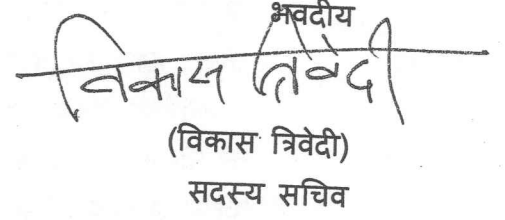 भवदीय
विकास त्रिवेदी
(विकास त्रिवेदी)
सदस्य सचिव